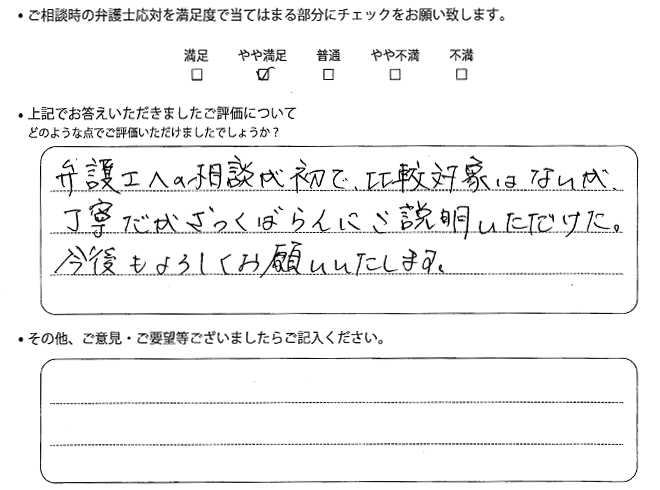 ・ご相談時の弁護士応対を満足度で当てはまる部分にチェックをお願い致します。
満足 やや満足 普通 やや不満 不満
□ ☑ □ □ □
・上記でお答えいただきましたご評価について
どのような点でご評価いただけましたでしょうか？
弁護士への相談が初で、比較対象はないが、
丁寧だがざっくばらんにご説明いただけた。
今後もよろしくお願いいたします。
・その他、ご意見・ご要望等ございましたらご記入ください。